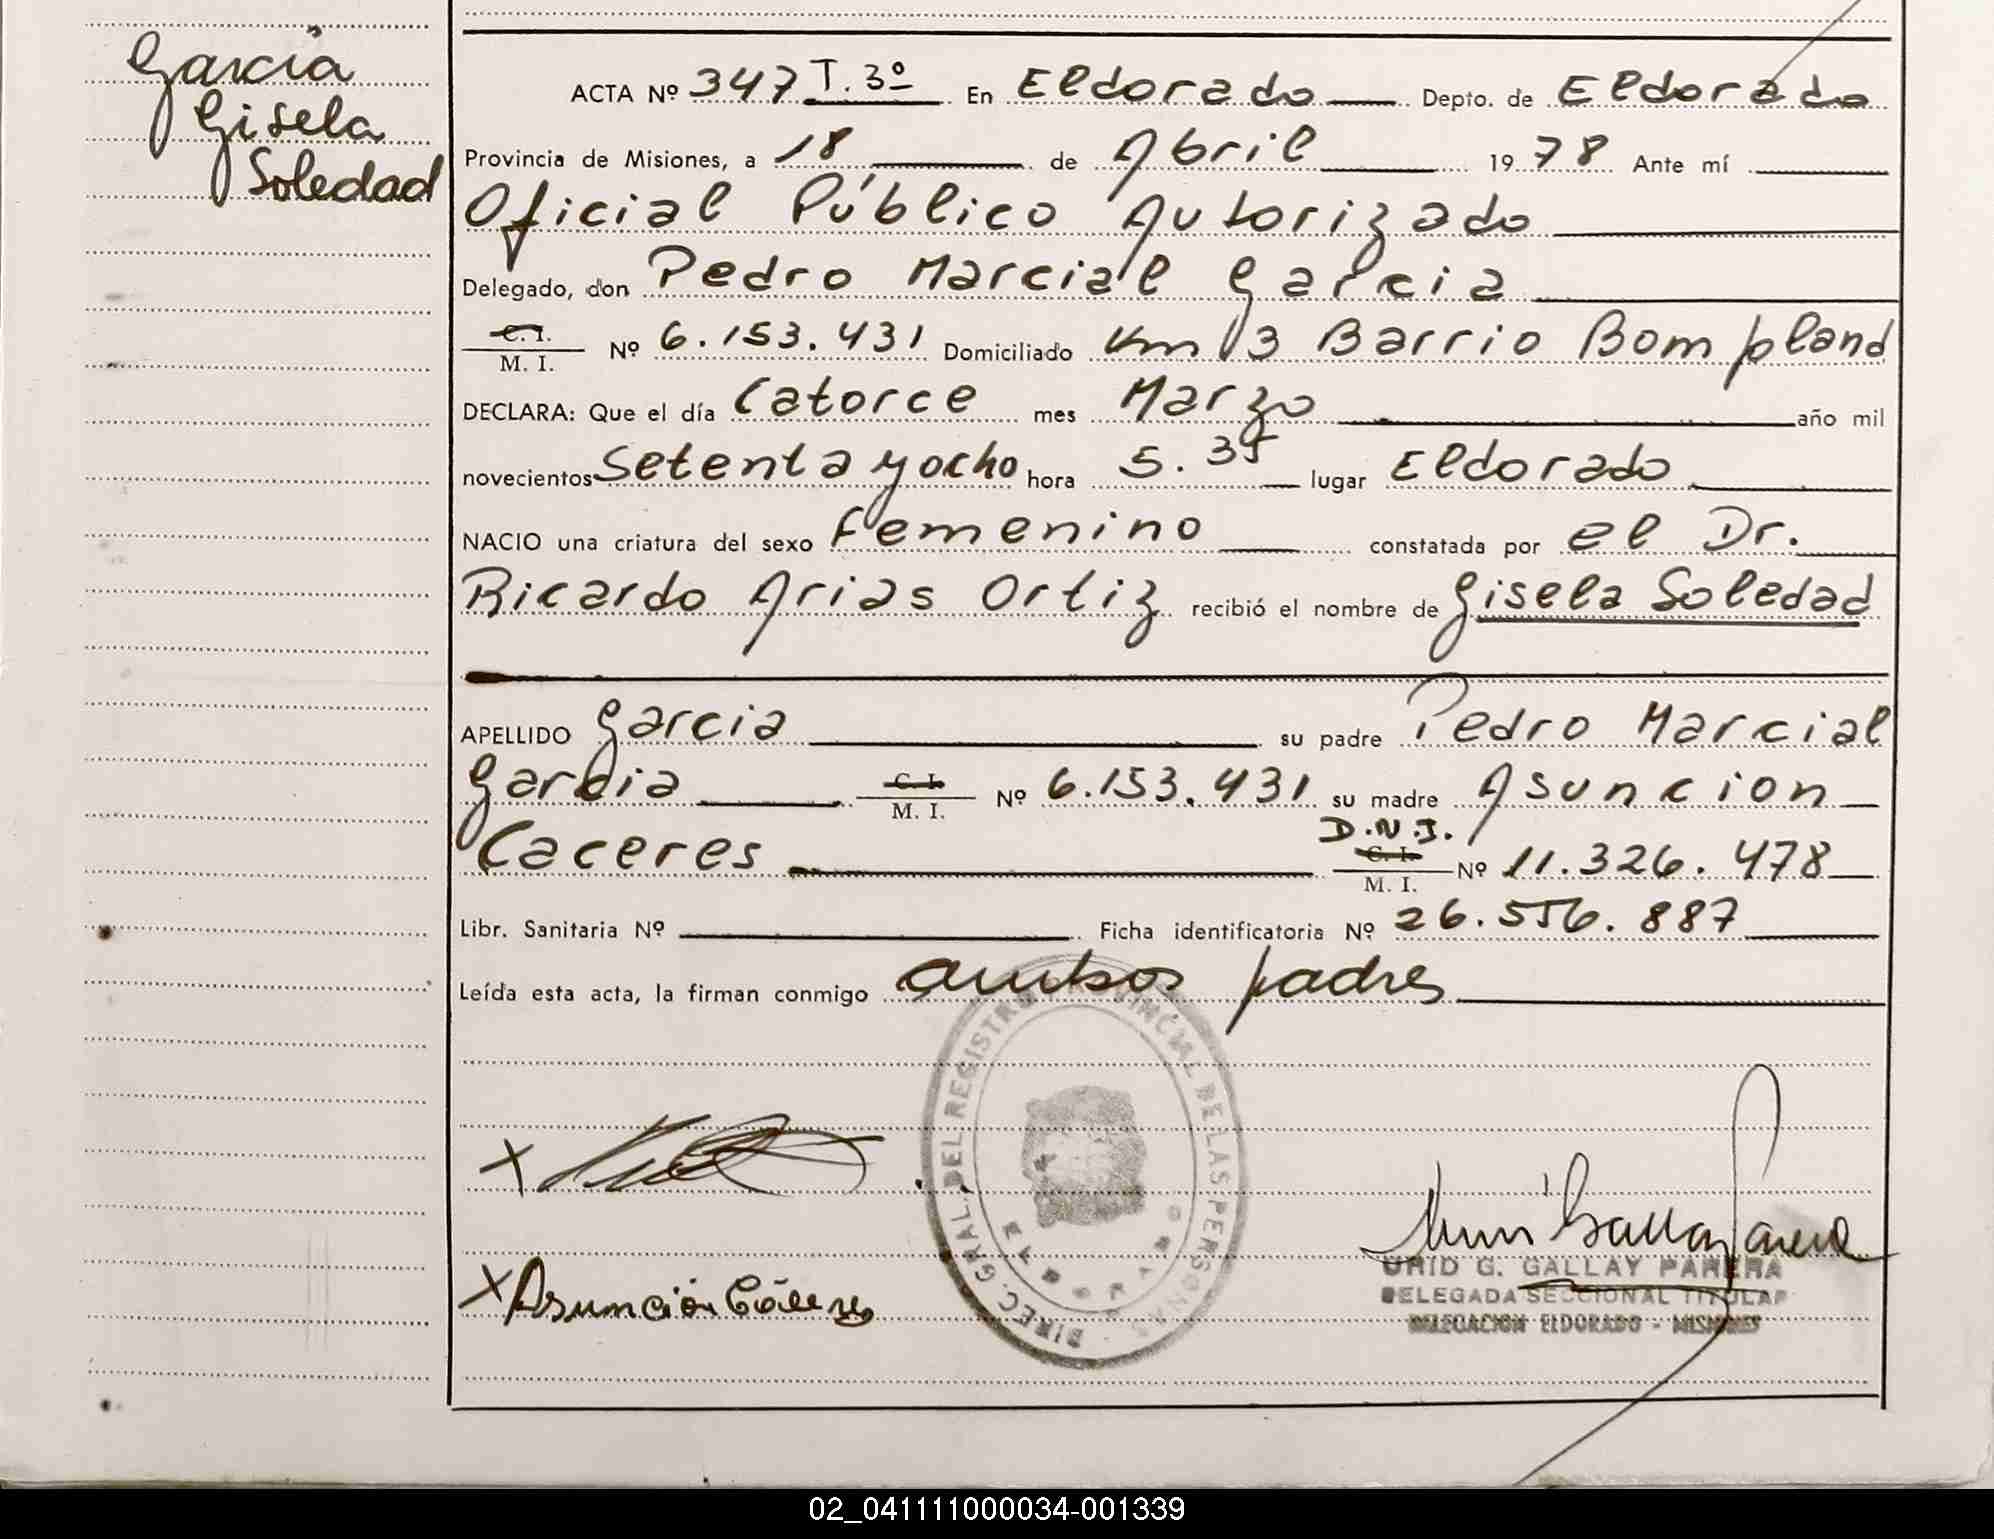 García
Gisela
Soledad
ACTA Nº 347 T. 3º En Eldorado Depto. de Eldorado
Provincia de Misiones, a 18 de Abril 1978 Ante mí
Oficial Público Autorizado
Delegado, don Pedro Marcial Garcia
C. I.
M. I. Nº 6.153.431 Domiciliado Km 3 Barrio Bompland
DECLARA: Que el día Catorce mes Marzo año mil
novecientos Setenta y ocho hora 5.35 lugar Eldorado
NACIO una criatura del sexo femenino constatada por el Dr.
Ricardo Arias Ortiz recibió el nombre de Gisela Soledad
APELLIDO Garcia su padre Pedro Marcial
Garcia C. I. M. I. Nº 6.153.431 su madre Asuncion
Caceres D.N.I. C. I. M. I. Nº 11.326.478
Libr. Sanitaria Nº Ficha identificatoria Nº 26.556.887
Leída esta acta, la firman conmigo ambos padres
DIREC. GRAL. DEL REGISTRO PROVINCIAL DE LAS PERSONAS
ELDORADO
X
X Asunción Cáceres
G. GALLAY PARERA
DELEGADA SECCIONAL TITULAR
DELEGACION ELDORADO - MISIONES
02_041111000034-001339